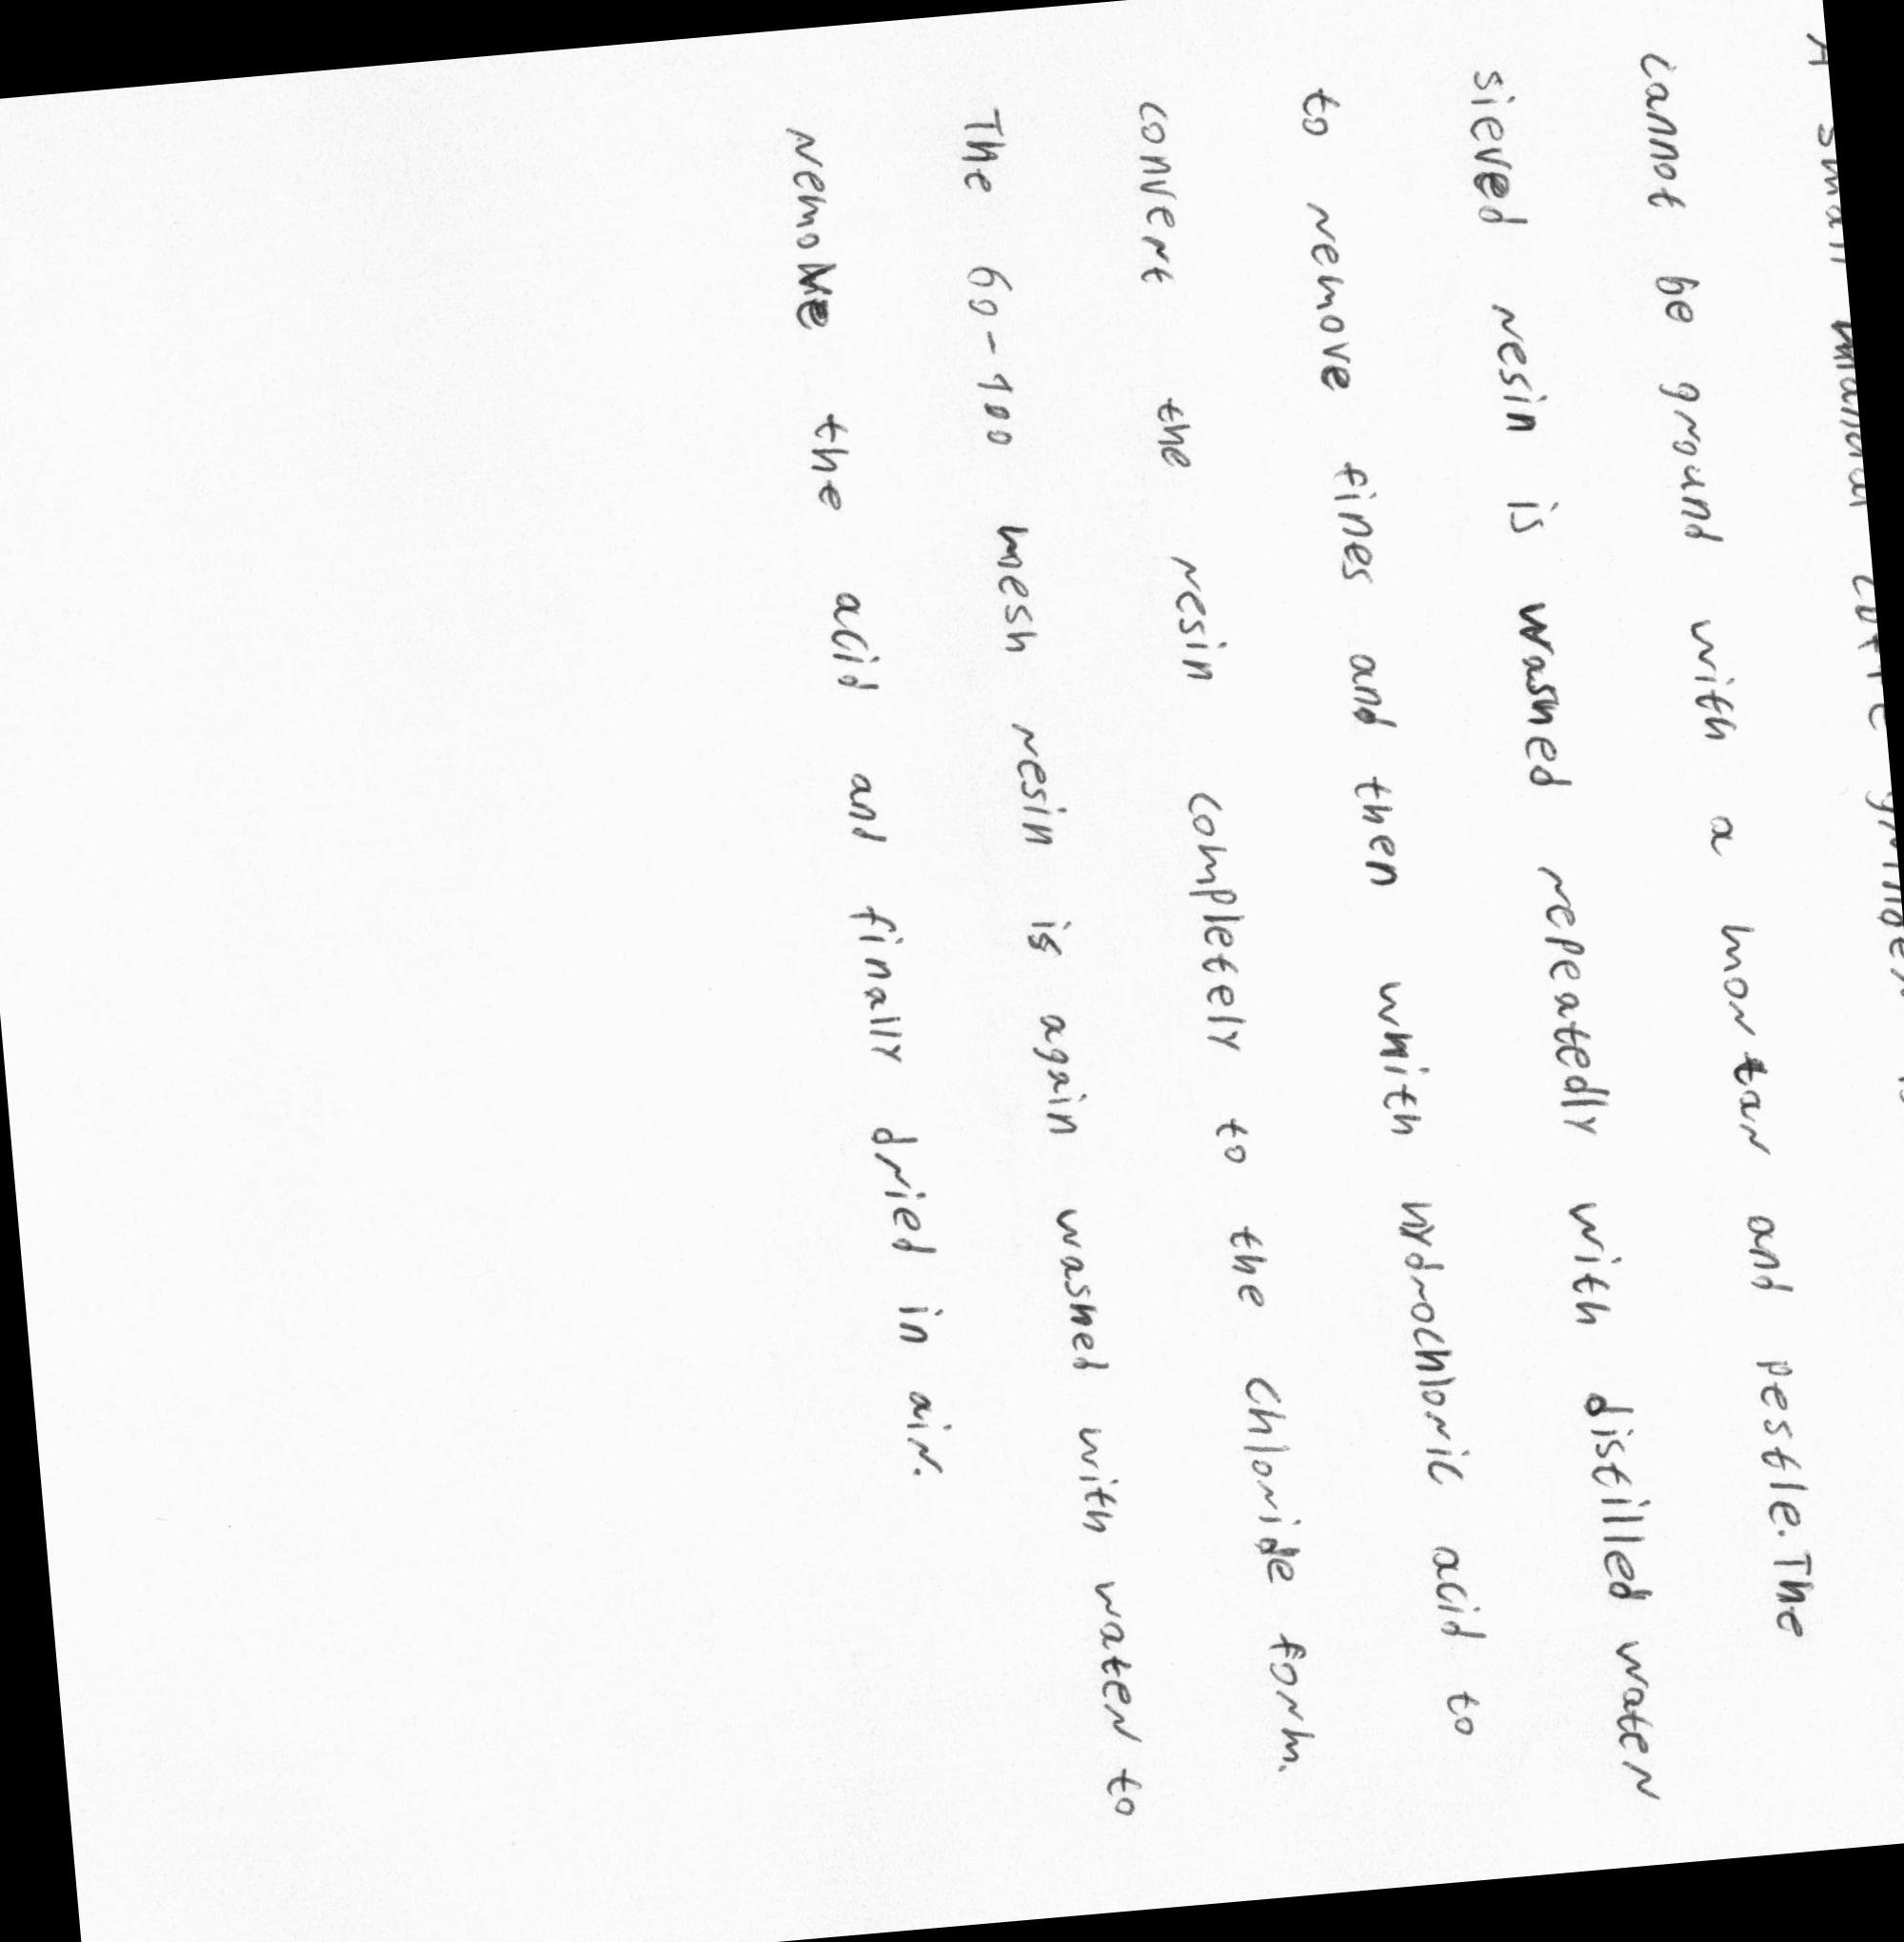 A small manual coffee grinder is
cannot be ground with a mortar and pestle. The
sieved resin is washed repeatedly with distilled water
to remove fines and then with hydrochloric acid to
convert the resin completely to the chloride form.
The 60-100 mesh resin is again washed with water to
remove the acid and finally dried in air.